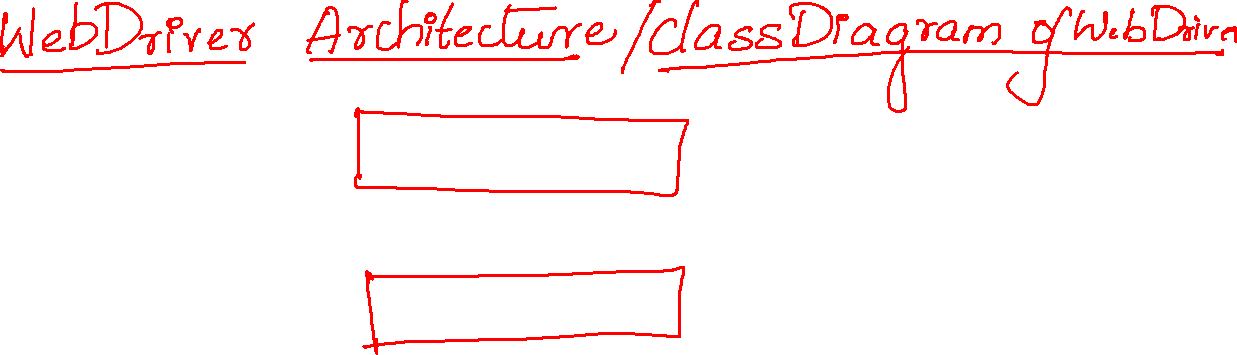 WebDriver Architecture / class Diagram of WebDriver